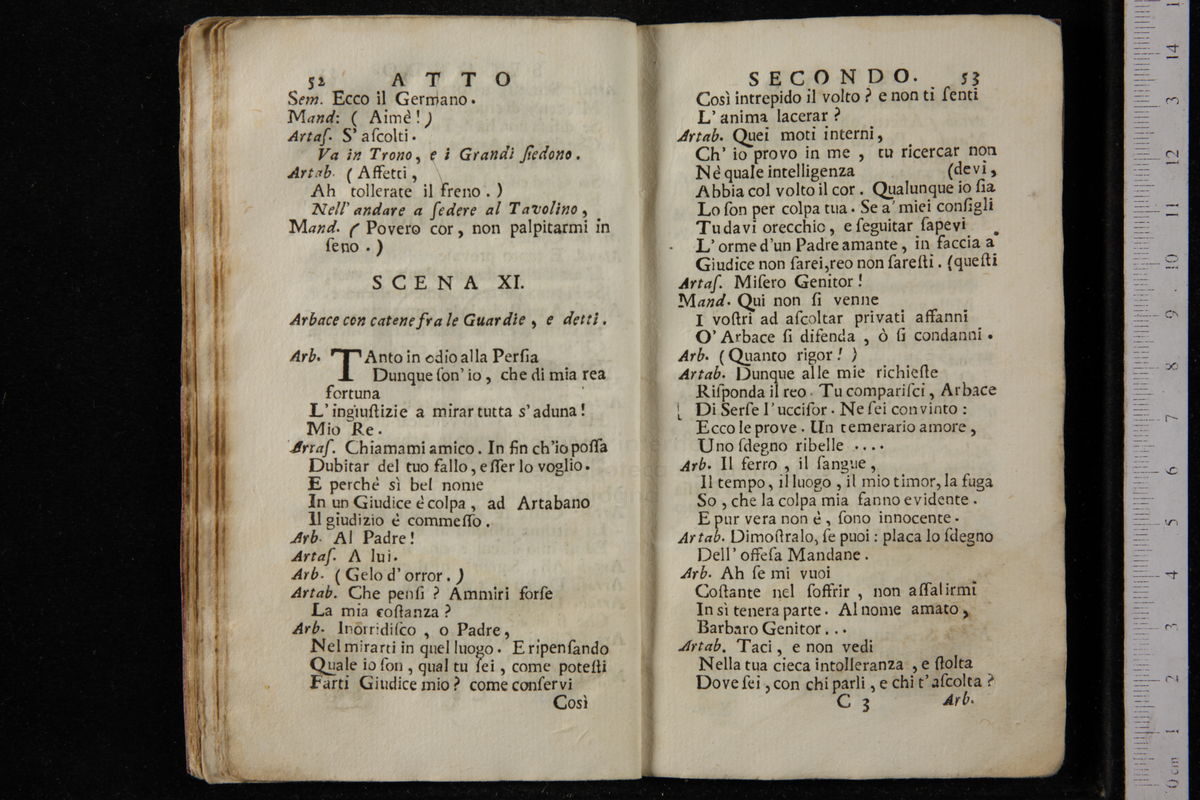 52 ATTO
Sem. Ecco il Germano.
Mand: ( Aimè! )
Artaſ. S' aſcolti.
Va in Trono, e i Grandi ſiedono.
Artab. ( Affetti,
Ah tollerate il freno. )
Nell' andare a ſedere al Tavolino,
Mand. ( Povero cor, non palpitarmi in
ſeno. )
SCENA XI.
Arbace con catene fra le Guardie, e detti.
Arb. TAnto in odio alla Perſia
Dunque ſon' io, che di mia rea
fortuna
L' ingiuſtizie a mirar tutta s' aduna!
Mio Re.
Artaſ. Chiamami amico. In fin ch'io poſſa
Dubitar del tuo fallo, eſſer lo voglio.
E perchè sì bel nome
In un Giudice è colpa, ad Artabano
Il giudizio è commeſſo.
Arb. Al Padre!
Artaſ. A lui.
Arb. ( Gelo d' orror. )
Artab. Che penſi? Ammiri forſe
La mia coſtanza?
Arb. Inorridiſco, o Padre,
Nel mirarti in quel luogo. E ripenſando
Quale io ſon, qual tu ſei, come poteſti
Farti Giudice mio? come conſervi
Così
SECONDO. 53
Così intrepido il volto? e non ti ſenti
L' anima lacerar?
Artab. Quei moti interni,
Ch' io provo in me, tu ricercar non
Nè quale intelligenza (devi,
Abbia col volto il cor. Qualunque io ſia
Lo ſon per colpa tua. Se a' miei conſigli
Tu davi orecchio, e ſeguitar ſapevi
L' orme d'un Padre amante, in faccia a
Giudice non ſarei, reo non ſareſti. (queſti
Artaſ. Miſero Genitor!
Mand. Qui non ſi venne
I voſtri ad aſcoltar privati affanni
O' Arbace ſi difenda, ò ſi condanni.
Arb. ( Quanto rigor! )
Artab. Dunque alle mie richieſte
Riſponda il reo. Tu compariſci, Arbace
Di Serſe l' ucciſor. Ne ſei convinto:
Ecco le prove. Un temerario amore,
Uno ſdegno ribelle ....
Arb. Il ferro, il ſangue,
Il tempo, il luogo, il mio timor, la fuga
So, che la colpa mia fanno evidente.
E pur vera non è, ſono innocente.
Artab. Dimoſtralo, ſe puoi: placa lo ſdegno
Dell' offeſa Mandane.
Arb. Ah ſe mi vuoi
Coſtante nel ſoffrir, non aſſalirmi
In sì tenera parte. Al nome amato,
Barbaro Genitor...
Artab. Taci, e non vedi
Nella tua cieca intolleranza, e ſtolta
Dove ſei, con chi parli, e chi t' aſcolta?
C 3 Arb.